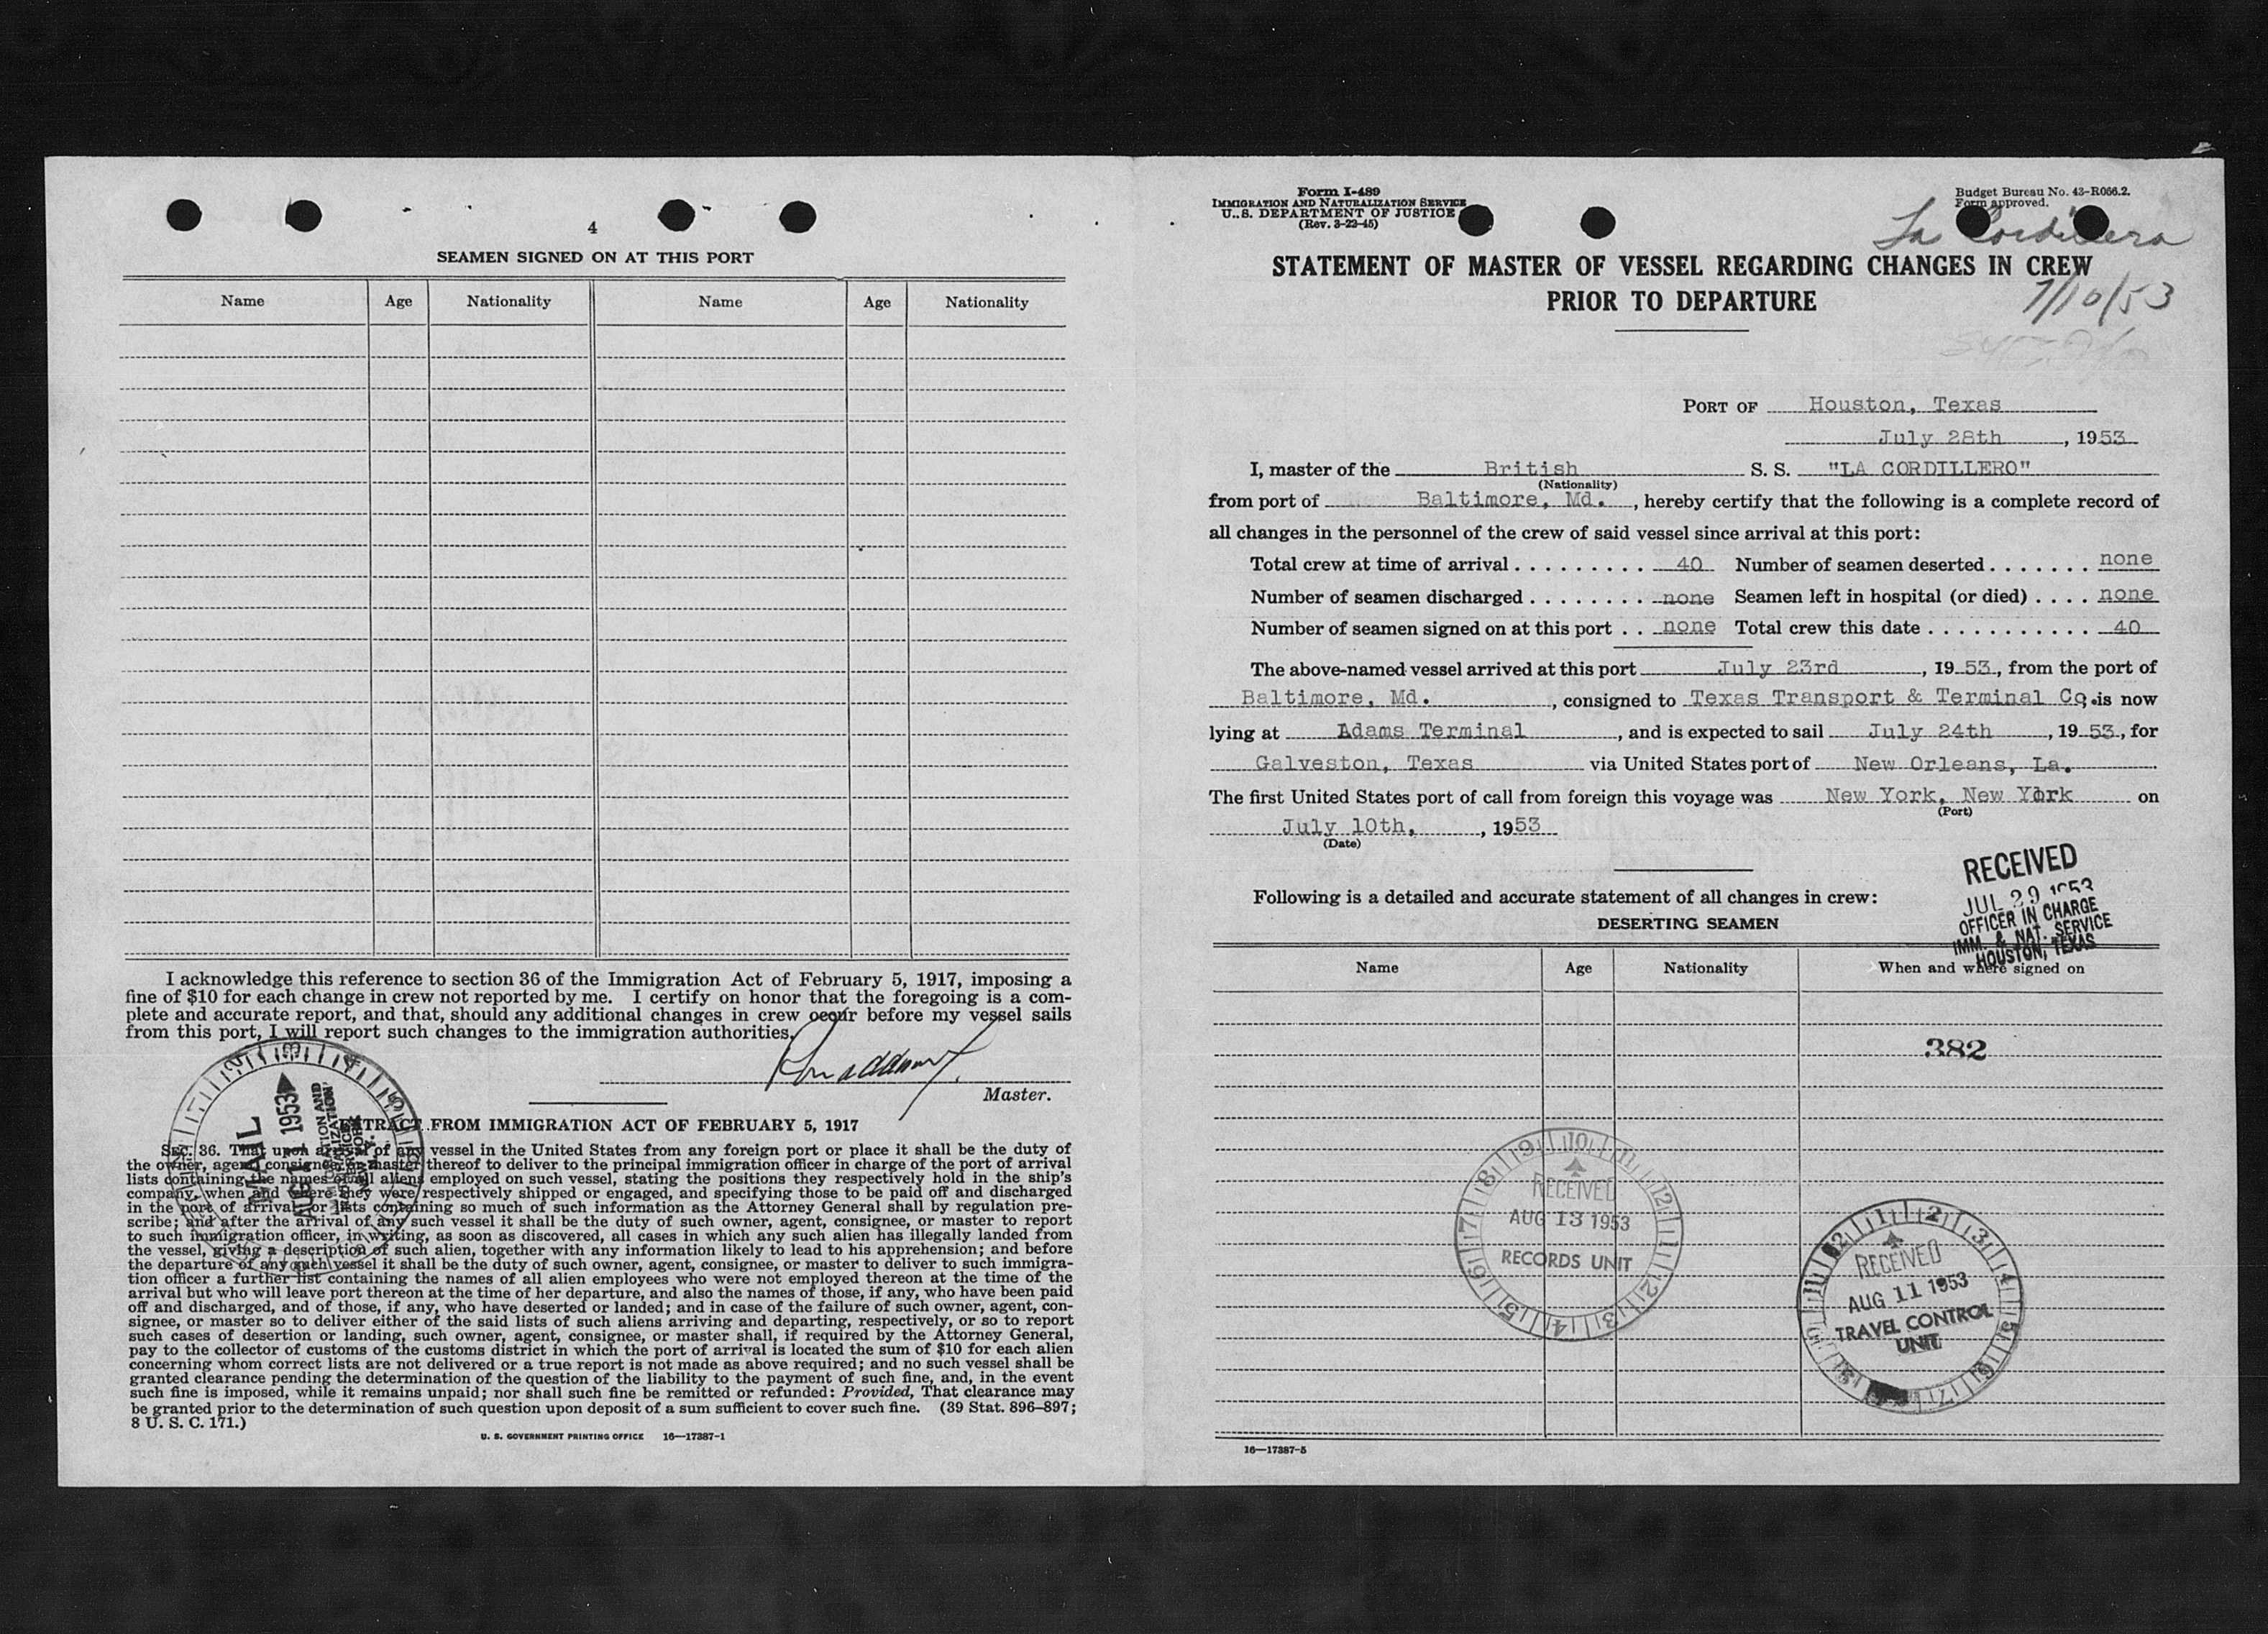 4
SEAMEN SIGNED ON AT THIS PORT
Name Age Nationality Name Age Nationality
I acknowledge this reference to section 36 of the Immigration Act of February 5, 1917, imposing a
fine of $10 for each change in crew not reported by me. I certify on honor that the foregoing is a com-
plete and accurate report, and that, should any additional changes in crew occur before my vessel sails
from this port, I will report such changes to the immigration authorities.
Master.
MAIL
AUG 11 1953
EXTRACT FROM IMMIGRATION ACT OF FEBRUARY 5, 1917
SEC. 36. That upon arrival of any vessel in the United States from any foreign port or place it shall be the duty of
the owner, agent, consignee, or master thereof to deliver to the principal immigration officer in charge of the port of arrival
lists containing the names of all aliens employed on such vessel, stating the positions they respectively hold in the ship's
company, when and where they were respectively shipped or engaged, and specifying those to be paid off and discharged
in the port of arrival; or lists containing so much of such information as the Attorney General shall by regulation pre-
scribe; and after the arrival of any such vessel it shall be the duty of such owner, agent, consignee, or master to report
to such immigration officer, in writing, as soon as discovered, all cases in which any such alien has illegally landed from
the vessel, giving a description of such alien, together with any information likely to lead to his apprehension; and before
the departure of any such vessel it shall be the duty of such owner, agent, consignee, or master to deliver to such immigra-
tion officer a further list containing the names of all alien employees who were not employed thereon at the time of the
arrival but who will leave port thereon at the time of her departure, and also the names of those, if any, who have been paid
off and discharged, and of those, if any, who have deserted or landed; and in case of the failure of such owner, agent, con-
signee, or master so to deliver either of the said lists of such aliens arriving and departing, respectively, or so to report
such cases of desertion or landing, such owner, agent, consignee, or master shall, if required by the Attorney General,
pay to the collector of customs of the customs district in which the port of arrival is located the sum of $10 for each alien
concerning whom correct lists are not delivered or a true report is not made as above required; and no such vessel shall be
granted clearance pending the determination of the question of the liability to the payment of such fine, and, in the event
such fine is imposed, while it remains unpaid; nor shall such fine be remitted or refunded: Provided, That clearance may
be granted prior to the determination of such question upon deposit of a sum sufficient to cover such fine. (39 Stat. 896–897;
8 U. S. C. 171.)
U. S. GOVERNMENT PRINTING OFFICE 16—17387-1
Form I-489
IMMIGRATION AND NATURALIZATION SERVICE
U. S. DEPARTMENT OF JUSTICE
(Rev. 3-22-45)
Budget Bureau No. 43-R066.2.
Form approved.
La Cordillera
STATEMENT OF MASTER OF VESSEL REGARDING CHANGES IN CREW
PRIOR TO DEPARTURE
7/10/53
PORT OF Houston, Texas
July 28th, 1953
I, master of the British S. S. "LA CORDILLERO"
(Nationality)
from port of Baltimore, Md., hereby certify that the following is a complete record of
all changes in the personnel of the crew of said vessel since arrival at this port:
Total crew at time of arrival . . . . . . . . . 40 Number of seamen deserted . . . . . . . none
Number of seamen discharged . . . . . . . . none Seamen left in hospital (or died) . . . . none
Number of seamen signed on at this port . . none Total crew this date . . . . . . . . . . . . 40
The above-named vessel arrived at this port July 23rd, 1953, from the port of
Baltimore, Md., consigned to Texas Transport & Terminal Co. is now
lying at Adams Terminal, and is expected to sail July 24th, 1953, for
Galveston, Texas via United States port of New Orleans, La.
The first United States port of call from foreign this voyage was New York, New York on
(Port)
July 10th, 1953
(Date)
RECEIVED
JUL 29 1953
OFFICER IN CHARGE
IMM. & NAT. SERVICE
HOUSTON, TEXAS
Following is a detailed and accurate statement of all changes in crew:
DESERTING SEAMEN
Name Age Nationality When and where signed on
382
RECEIVED
AUG 13 1953
RECORDS UNIT
RECEIVED
AUG 11 1953
TRAVEL CONTROL
UNIT
16—17387-5